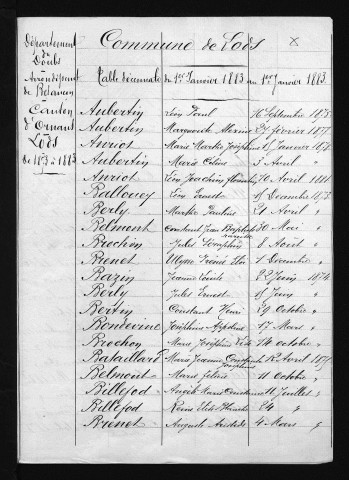 Commune de Lods
Département
du
Doubs
Arrondissement
de Besançon
Canton
d'Ornans
Lods
de 1873 à 1883
Table décennale du 1er Janvier 1873 au 1er Janvier 1883
Aubertin Léon Paul 16 Septembre 1873
Aubertin Marguerite 24 février 1877
Anriot Marie Marthe Joséphine 15 Janvier 1878
Aubertin Marie Céline 3 Avril "
Anriot Léon Joachim 30 Avril
Léon Ernest 15 Décembre 1873
Berly Marthe Pauline 21 Avril "
Belmont Constant Jean Baptiste 30 Mai "
Brochon Jules Joseph 8 Août "
Brenet Ulysse 1 Décembre "
Bazin Jeanne Cécile 22 Juin 1874
Berly Jules Ernest 15 Juin "
Bertin Constant Henri 29 Octobre "
Joséphine 17 Mars "
Brochon Marie Joséphine 14 octobre "
Bataillard Marie Jeanne Joséphine 12 Avril 1875
Belmont Marie 11 Octobre "
Billefod Angèle Marie Constance 11 Juillet "
Billefod Reine Elise Blanche 24 "
Brenet Auguste Aristide 4 Mars "